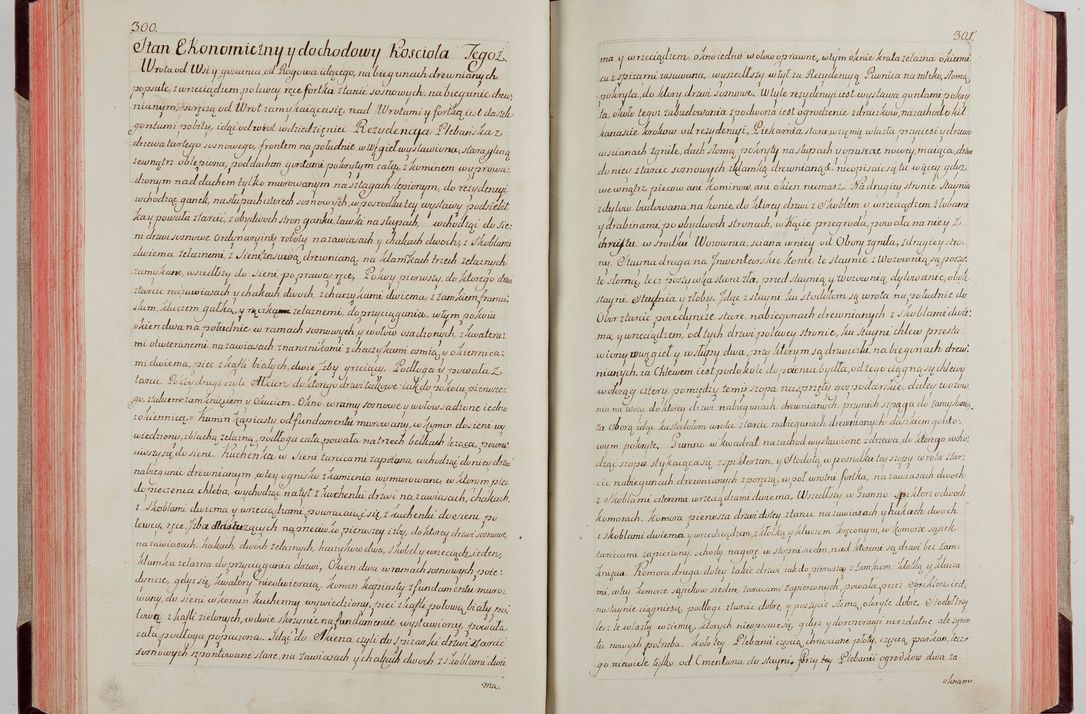 300.
Stan Ekonomiczny y dochodowy Kosciola Tegoż.
Wrota od Wsi y goscinca, od Rogowa idącego, na biegunach drewnianych
popsute, z wrzeciądzem, po lewey ręce fortka z tarcic sosnowych, na biegunie drew:
nianym, poręczą od Wrot zamykaiąca się, nad Wrotami y fortką iest daszek
gontami pobity, idąc od wrot w dziedzięniec Rezydencya Plebańska z
drzewa tartego sosnowego, frontem na południe w Węgieł wystawiona, stara, gliną
zewnątrz oblepiona, pod dachem gontami pokrytym całą, z kominem wyprowa:
dzonym nad duchem tylko murowanym na sztagach lepionym, do rezydencyi
wchodząc ganek, na słupach czterech sosnowych, w posrodku tey wystawy podsiebit:
ka y powała z tarcic, z obydwoch stron ganku, ławki na słupach, wchodząc do sie:
ni drzwi sosnowe ordynaryiney roboty na zawiasach y hakach dwoch, z Skoblami
dwiema żelaznemi, z Sieni zasuwą drewnianą, na klamkach trzech żelaznych
zamykane, wszedłszy do Sieni po prawey ręce, Pokoy pierwszy, do ktorego drzwi
z tarcic na zawiasach y hakach dwoch, z haczykami dwiema, z zamkiem francu:
skim, kluczem, gałką, y rączką żelaznemi, do przyciągania, w tym pokoiu
okien dwa na południe w ramach sosnowych y w ołow osadzonych, z kwatera:
mi otwieranemi na zawiasach z narożnikami z haczykami osmią, y okiennica:
mi dwiema, piec z kafli białych, dwie izby grzeiący. Podłoga y powała z
tarcic. Pokoy drugi czyli Alkierz do ktorego drzwi takowe iak do pokoiu pierwsze:
go, z takiem zamknięciem y Okuciem. Okno w ramy sosnowe y w ołow sadzone iedno
z okiennicą. Kamin kapiasty od fundamentu murowany, w komin do sieni wy:
wiedziony, z blachą żelazną, podłoga cała, powała na trzech belkach leżąca, powro:
ciwszy się do sieni. Kuchenka w Sieni tarcicami zapierzona, wchodząc do niey drzwi
na biegunie drewnianym, w tey ognisko z kamienia wymurowane, w ktorym piec
do pieczenia chleba, wychodząc na tył z kuchenki drzwi na zawiasach, hakach,
z Skoblami dwiema y wrzeciądzami, powracaiąc się z kuchenki do sieni, po
lewey ręce, Izba dla służących naprzeciwko pierwszey izby, do ktorey drzwi sosnowe
na zawiasach, hakach, dwoch żelaznych, haczykow dwa, Skobel y wrzeciądz ieden,
klamka żelazna do przyciągania drzwi, Okien dwa w ramach sosnowych, poie:
dyncze, gdyż się kwatery nie otwieraią, komin kapiasty z fundamentu muro:
wany, do sieni w komin kuchenny wywiedziony, piec z kafli połową biały, po:
łową z kafli zielonych, w dwie skrzynie na fundamencie wystawiony, powała
cała, podłoga popsuta. Idąc do Alkierza, czyli do spizarki drzwi z tarcic
sosnowych szpontowane stare, na zawiasach y hakach dwoch, z skoblami dwie
ma.
301.
ma y wrzeciądzem, okno iedno w ołow oprawne, w tym oknie krata żelazna okienni
ca z spizarni zasuwana, wyszedłszy w tył za Rezydencyą Piwnica na mleko, słomą
pokryta, do ktory drzwi sosnowe. W tyle rezydencyi iest wystawa gontami pokry
ta, około tegoż zabudowania z podworza iest ogrodzenie z drążkow, na zachod o kil
kanascie krokow od rezydencyi, Piekarnia stara, w ziemię wlazła, przyciesi y drzewo
w scianach zgniłe, dach słomą pokryty na słupach y opuszcze nowey, maiąca, drzwi
do niey z tarcic sosnowych z klamką drewnianą, nie opisuie się tu więcey gdyż
we wnątrz piecow ani kominow, ani okien niemasz. Na drugiey stronie Staynia
z dylow budowana, na konie, do ktorey drzwi z Skoblem y wrzeciądzem, z żłobami
y drabinami po obydwoch stronach, w kącie przegroda, powała na niey z
chrustu, w srodku Wozownia, sciana w niey od Obory zgniła, z drugiey stro:
ny, Stayna druga na Inwentarskie konie, te staynie z Wozownią są poszy:
te słomą, lecz poszywka stara zła, przed staynią y Wozownią, dylowanie, obok
stayni, Studnia y żłoby. Idąc z stayni ku stodołom są wrota na południe do
Obor z tarcic poiedyncze stare, na biegonach drewnianych z Skoblami dwie:
ma, y wrzeciądzem, od tych drzwi po lewey stronie, ku stayni chlew przesta
wiony w węgieł y w słupy dwa, przy ktorym są drzwiczki, na biegonach drew:
nianych, za Chlewem iest podokole do poienia bydła, od tego ciągną się chlewy
w oborzy cztery, pomiędzy temi szopa na sprzęty gospodarskie, daley wozow
nia na wozy, do ktorey drzwi na biegunach drewnianych, przy nich szpaga do zamykania,
za Oborą idąc ku stodołom wrota z tarcic na biegunach drewnianych daszkiem gonto:
wym pokryte. Gumno w kwadrat na zachod wystawione z drzewa, do ktorego wcho:
dząc szopa stykaiąca się, z spiklerzem, y Stodołą, w posrodku tey szopy wrota z tar:
cic na biegunach drewnianych z poręczą, w pol wrotni fortka, na zawiasach dwoch
z Skoblami czterema, wrzeciądzami dwiema. Wszedłszy w Gumno Spiklerz o dwoch
komorach. Komora pierwsza drzwi do tey z tarcic na zawiasach y hakach dwoch
z skoblami dwiema y wrzeciądzem, z kłotką y kluczem kręconym, w komorze sąsiek
tarcicami zapierzony, schody na gorę w stopni siedm, nad ktoremi są drzwi bez zam:
knięcia. Komora druga do tey takie drzwi iak do pierwszey z Zamkiem, kłotką y klucza
mi, w tey komorze sąsiekow siedm, tarcicami zapierzonych, powała przez Spiklerz ied:
nostaynie ciągniesię, podłogi z tarcic dobre, y poszycie słomą, okryte dobre, Stodoł trzy
lecz te wlazły w ziemię, ktorych nieopisuie się, gdyż y do reporacyi niezdatne ale zgoła
tu nowych potrzeba. Koło tey Plebanii częścią chrusciane płoty, częścią parkan, lecz
go niewiele tylko od Cmentarza do stayni. Przy tey Plebanii ogrodkow dwa za
oknam